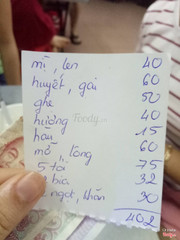 mì, len 40
huyết, gai 60
ghẹ 50
hương 40
hàu 15
mỡ, lòng 60
5 tái 75
bia 32
ngọt, khăn 30
402
Foody.vn